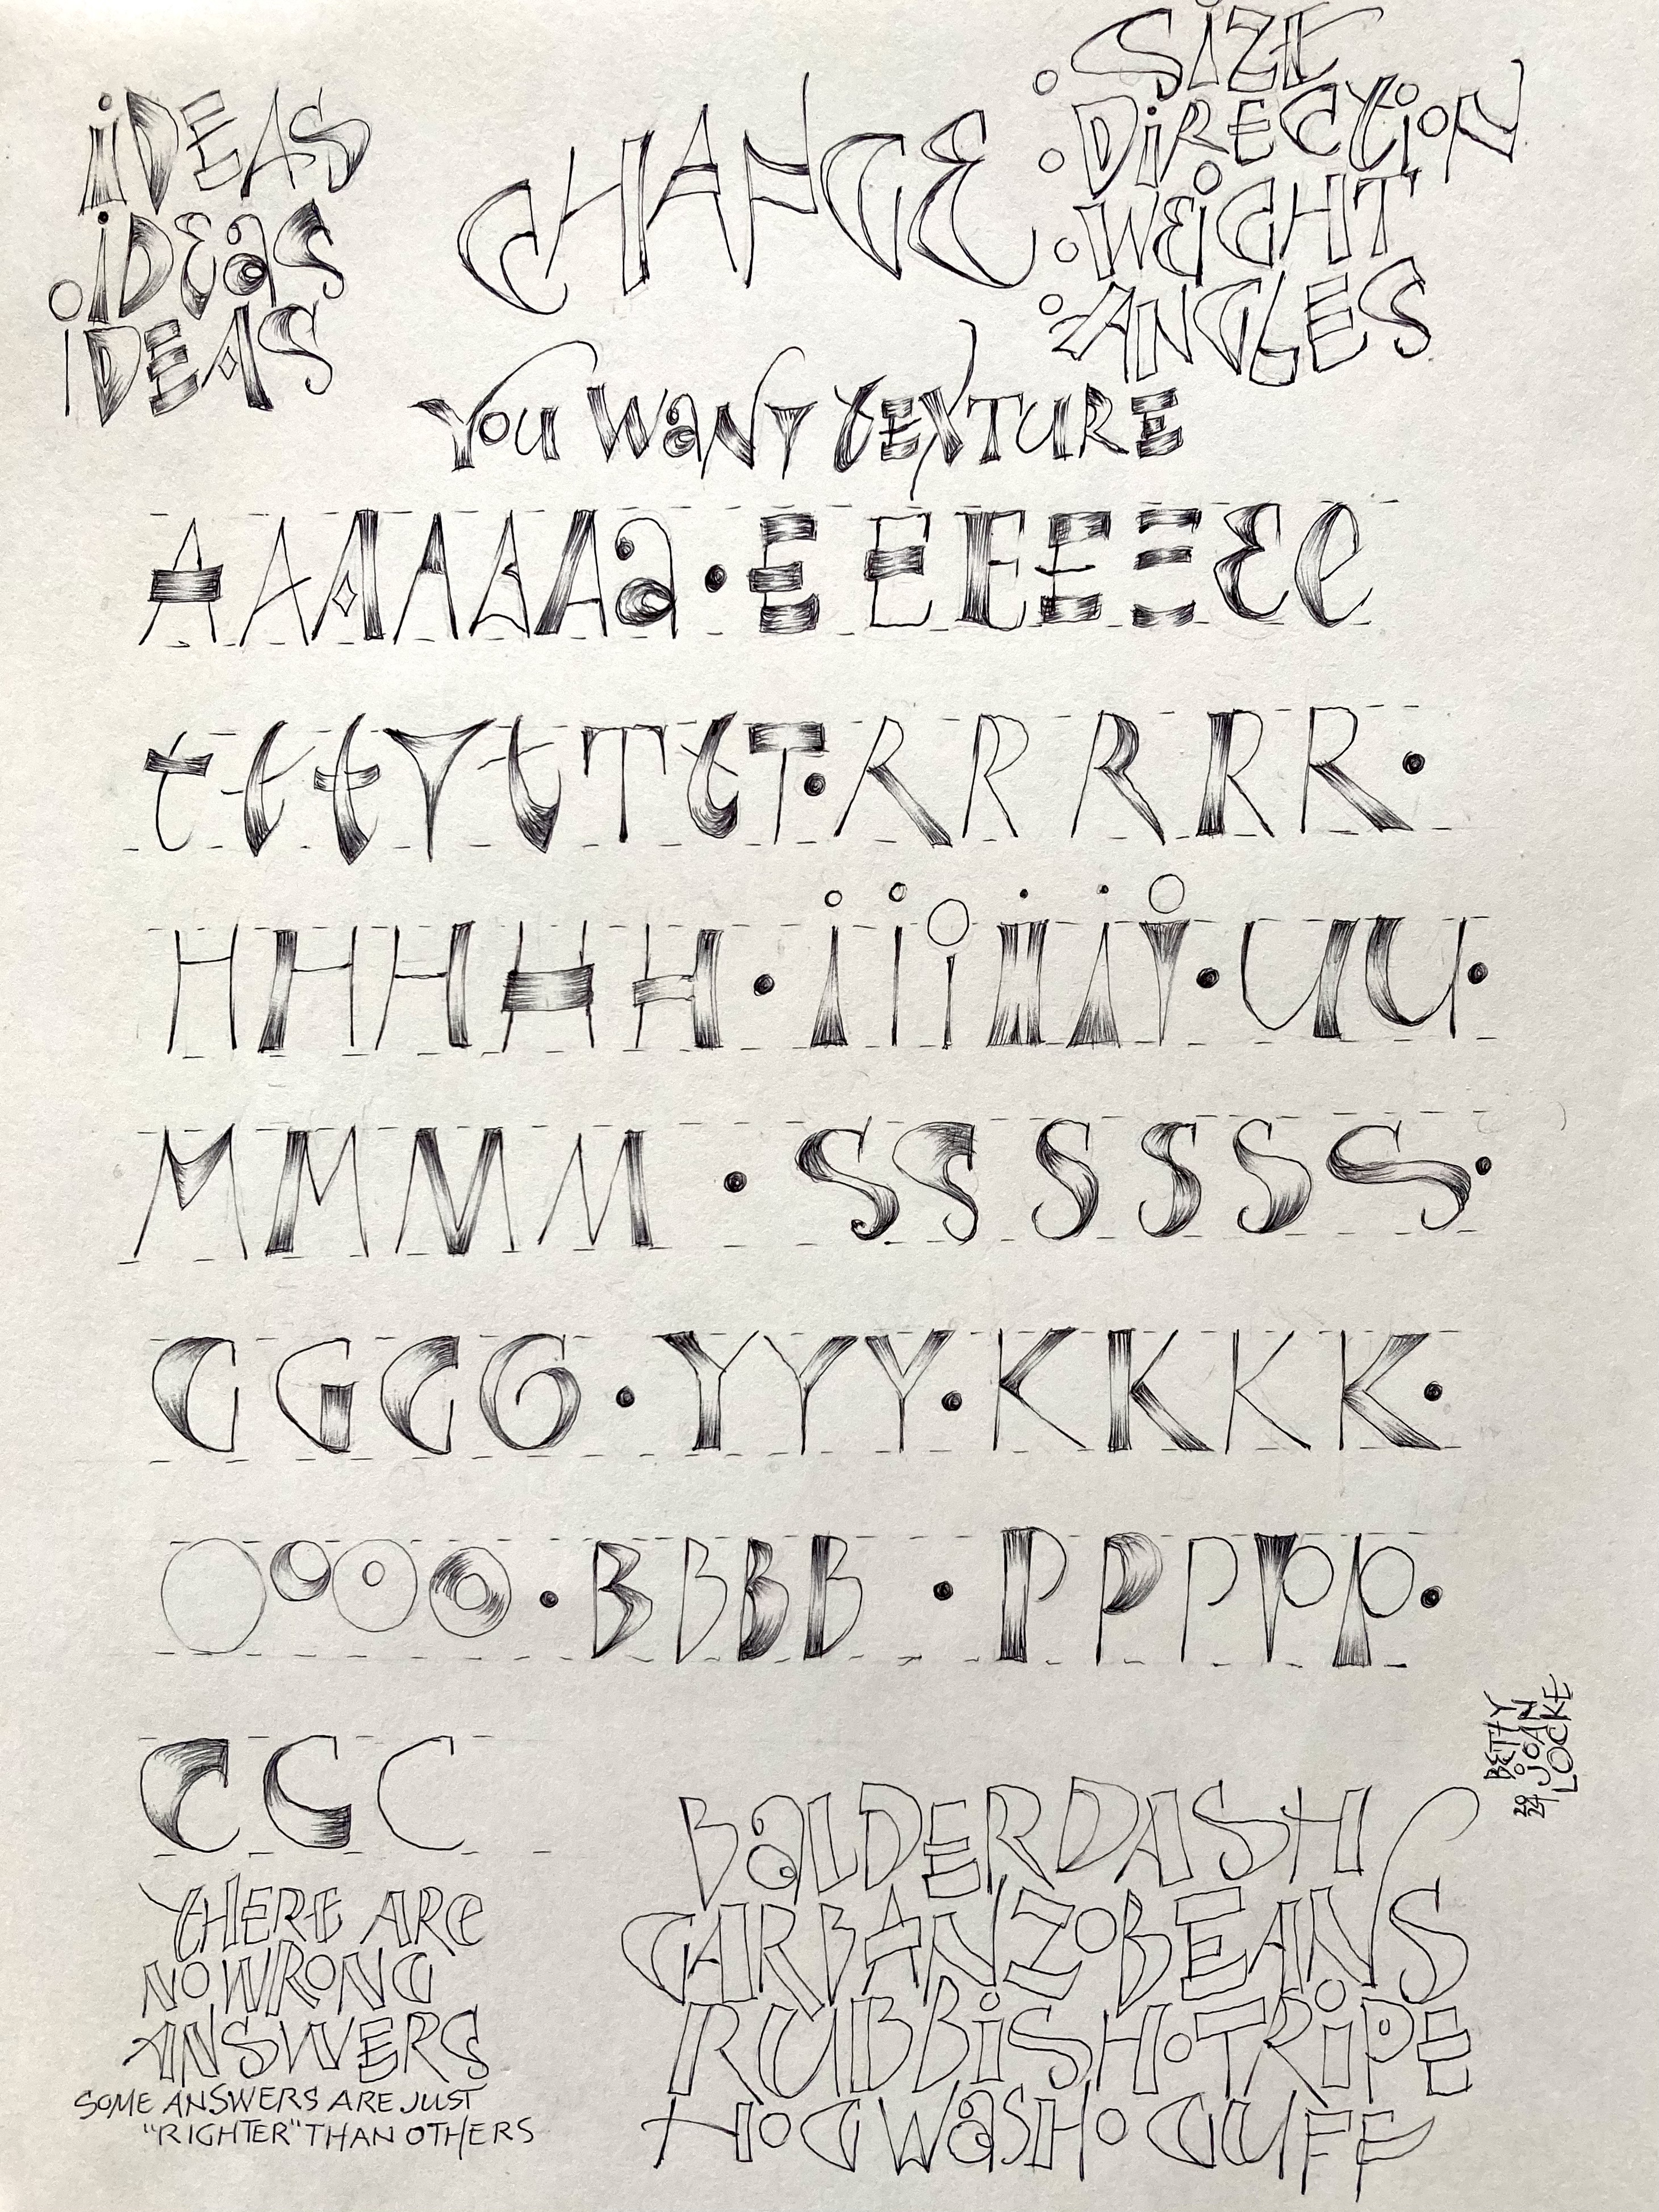 iDEAS
iDEaS
iDEAS
CHANGE
SiZE
DiRECtioN
WEiGHT
ANGLES
You WaNT tEXTURE
AAAAAAa•EEEEEEe
tttTtTtT•RRRRR•
HHHHH•iiiiii•UU•
MMMM•SSSSSS•
GGGG•YYY•KKKK•
OOOO•BBBB•PPPPP•
CCC
tHERE ARe
NO WRONG
ANSWERS
SOME ANSWERS ARE JUST
"RIGHTER" THAN OTHERS
BaLDERDASH
GARBANZO BEANS
RUBBiSH•TRiPE
HOGWaSH•GUFF
BETTY
JOAN
LOCKE
2024